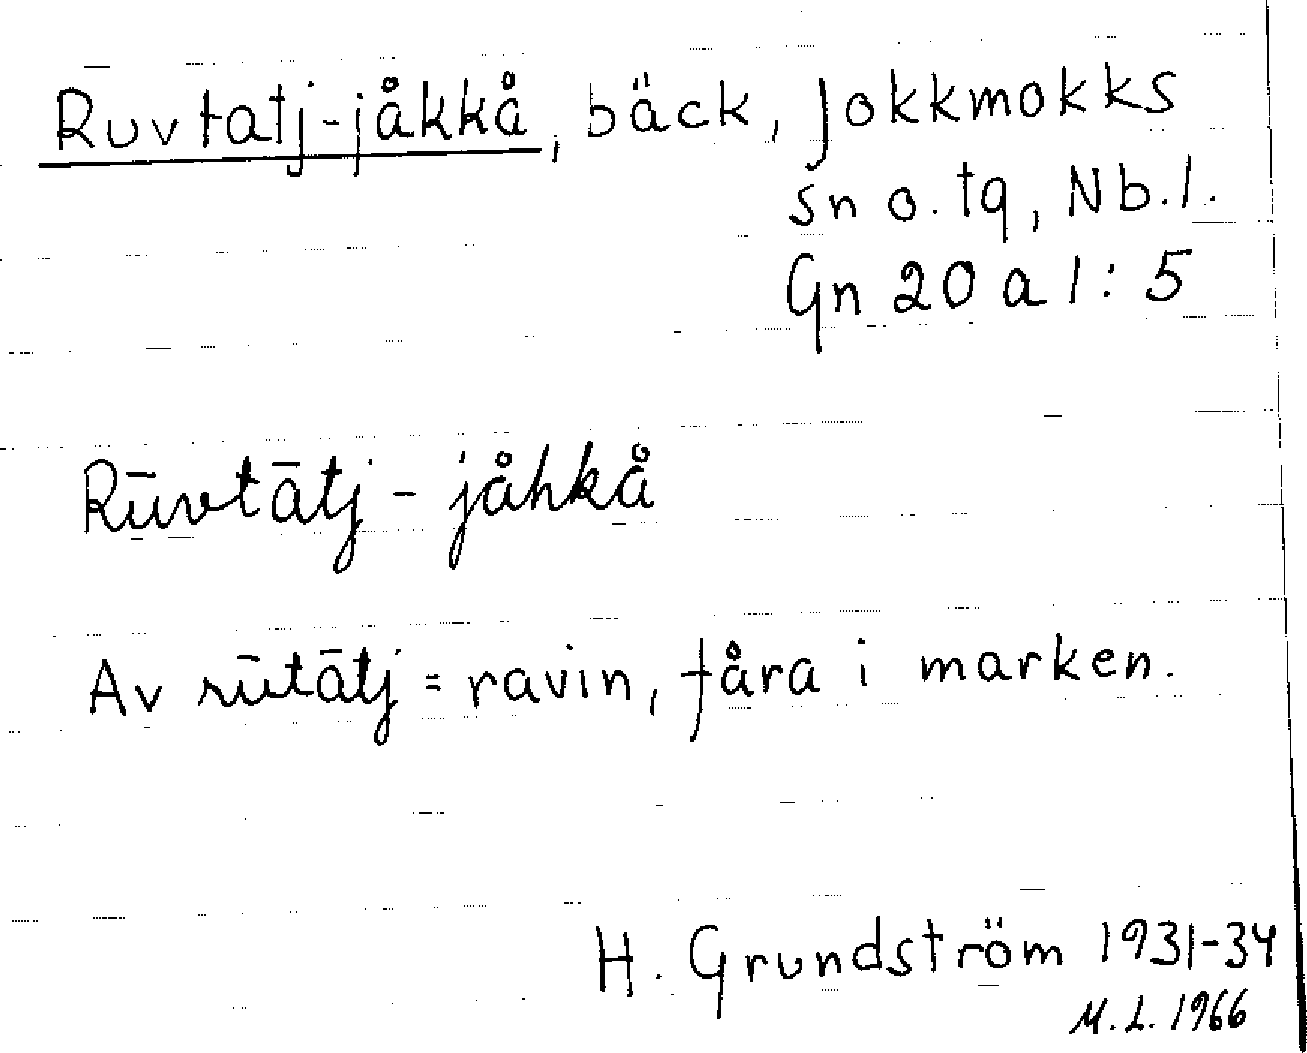 Ruvtatj-jåkkå, bäck, Jokkmokks
sn o. tg, Nb. l.
Gn 20 a 1: 5
Rūvtātj - jåhkå
Av rūtātj = ravin, fåra i marken.
H. Grundström 1931-34
M. L. 1966